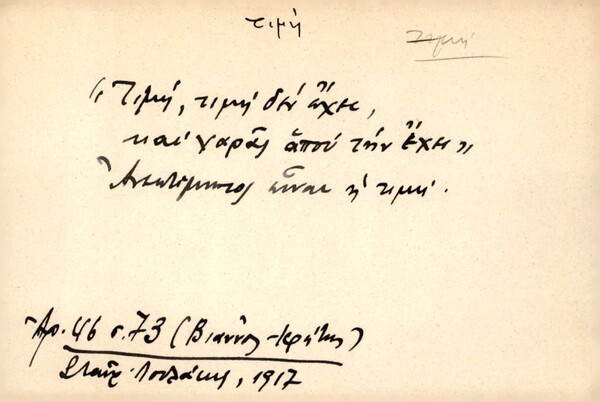 τιμή
τιμή
«Τιμή, τιμή δέν ἔχει,
καί χαρᾶς ἁποὺ τήν ἔχει»
Ἀνεκτίμητος εἶναι ἡ τιμή.
Ἀρ. 46 σ. 73 (Βιάννος - Κρήτης)
Σταῦρ. , 1917